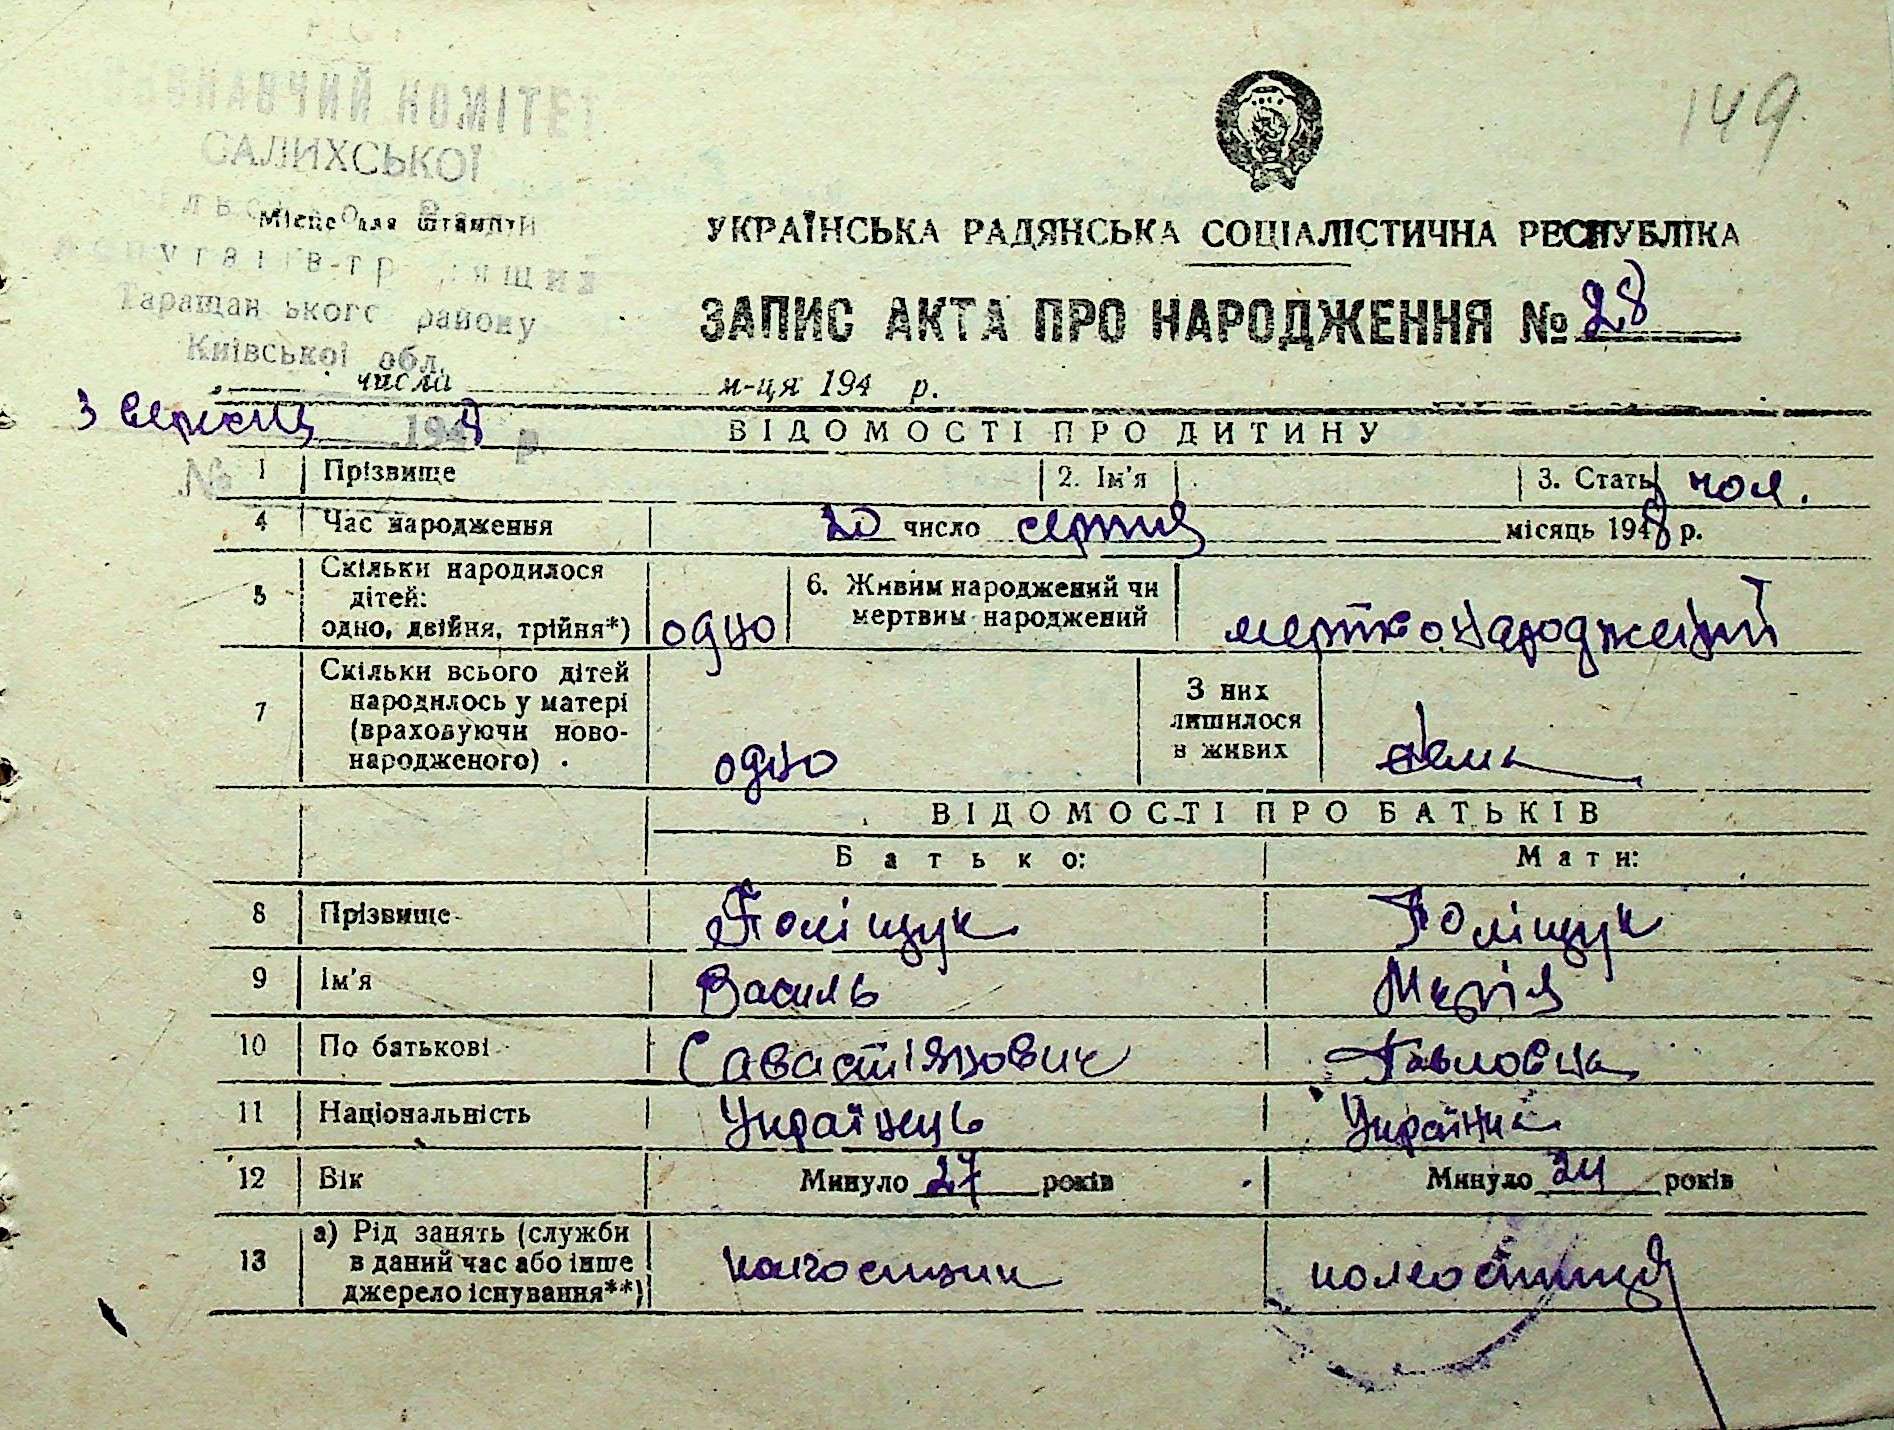 149
ВИКОНАВЧИЙ КОМІТЕТ
САЛИХСЬКОЇ
сільської Ради
Місце для штампу
депутатів трудящих
Таращанського району
Київської обл.
УКРАЇНСЬКА РАДЯНСЬКА СОЦІАЛІСТИЧНА РЕСПУБЛІКА
ЗАПИС АКТА ПРО НАРОДЖЕННЯ № 28
числа м-ця 194 р.
3 вересня 1948 р.
№
ВІДОМОСТІ ПРО ДИТИНУ
1 Прізвище 2. Ім'я 3. Стать чол.
4 Час народження 20 число серпня місяць 1948 р.
5 Скільки народилося дітей: одно, двійня, трійня*) одно 6. Живим народжений чи мертвим народжений мертвонароджений
7 Скільки всього дітей народилось у матері (враховуючи новонародженого) одно З них лишилося в живих
ВІДОМОСТІ ПРО БАТЬКІВ
Батько: Мати:
8 Прізвище Поліщук Поліщук
9 Ім'я Василь Марія
10 По батькові Савастіянович Павловна
11 Національність Українець Українка
12 Вік Минуло 27 років Минуло 24 років
13 а) Рід занять (служби в даний час або інше джерело існування**) колгоспник колгоспниця